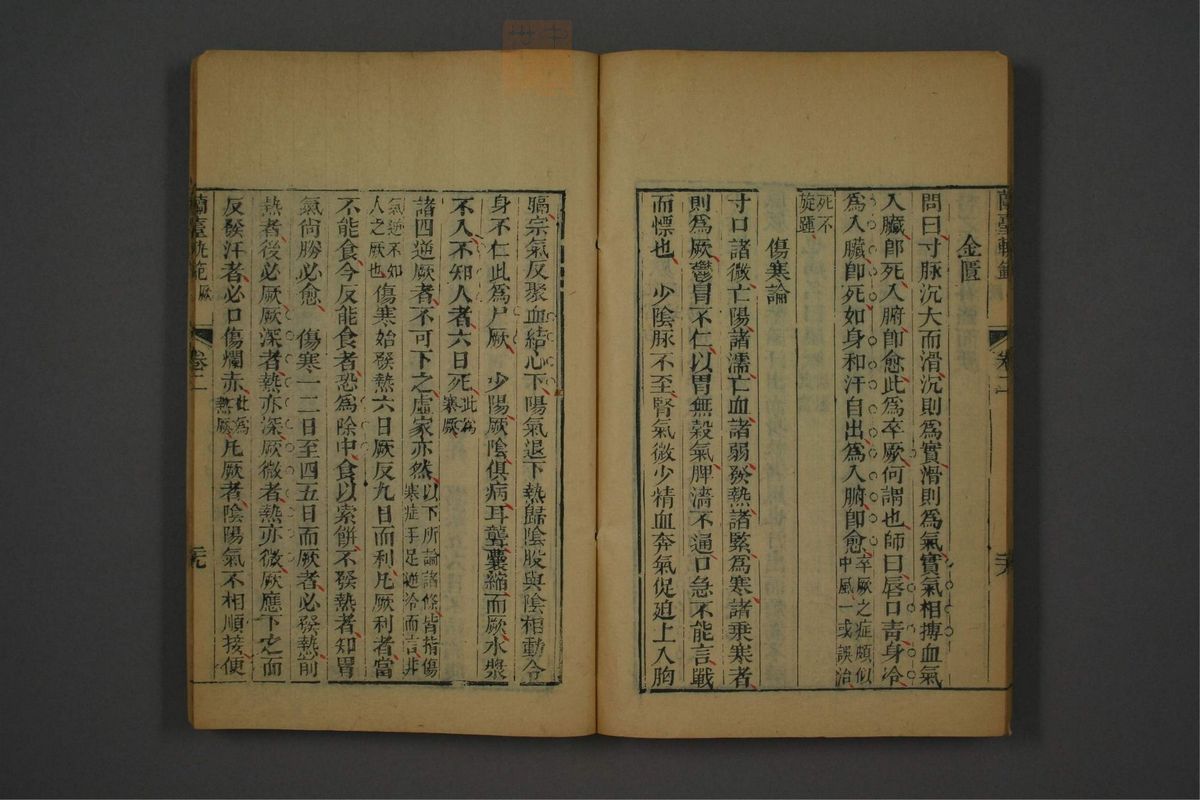 蘭臺軌範
卷二
金匱
問曰寸脉沉大而滑沉則為實滑則為氣實氣相搏血氣
入臟卽死入腑卽愈此為卒厥何謂也師曰唇口青身冷
為入臟卽死如身和汗自出為入腑卽愈卒厥之症頗似中風一或誤治
死不旋踵
傷寒論
寸口諸微亡陽諸濡亡血諸弱發熱諸緊為寒諸乗寒者
則為厥鬱冒不仁以胃無穀氣脾濇不通口急不能言戰
而慄也 少陰脉不至腎氣微少精血奔氣促迫上入胸
膈宗氣反聚血結心下陽氣退下熱歸陰股與陰相動令
身不仁此為尸厥 少陽厥陰俱病耳聾囊縮而厥水漿
不入不知人者六日死此為寒厥
諸四逆厥者不可下之虛家亦然以下所論諸條皆指傷寒症手足逆冷而言非
氣逆不知人之厥也傷寒始發熱六日厥反九日而利凡厥利者當
不能食今反能食者恐為除中食以索餅不發熱者知胃
氣尙勝必愈 傷寒一二日至四五日而厥者必發熱前
熱者後必厥厥深者熱亦深厥微者熱亦微厥應下之而
反發汗者必口傷爛赤此為熱厥凡厥者陰陽氣不相順接便
蘭臺軌範
厥
卷二